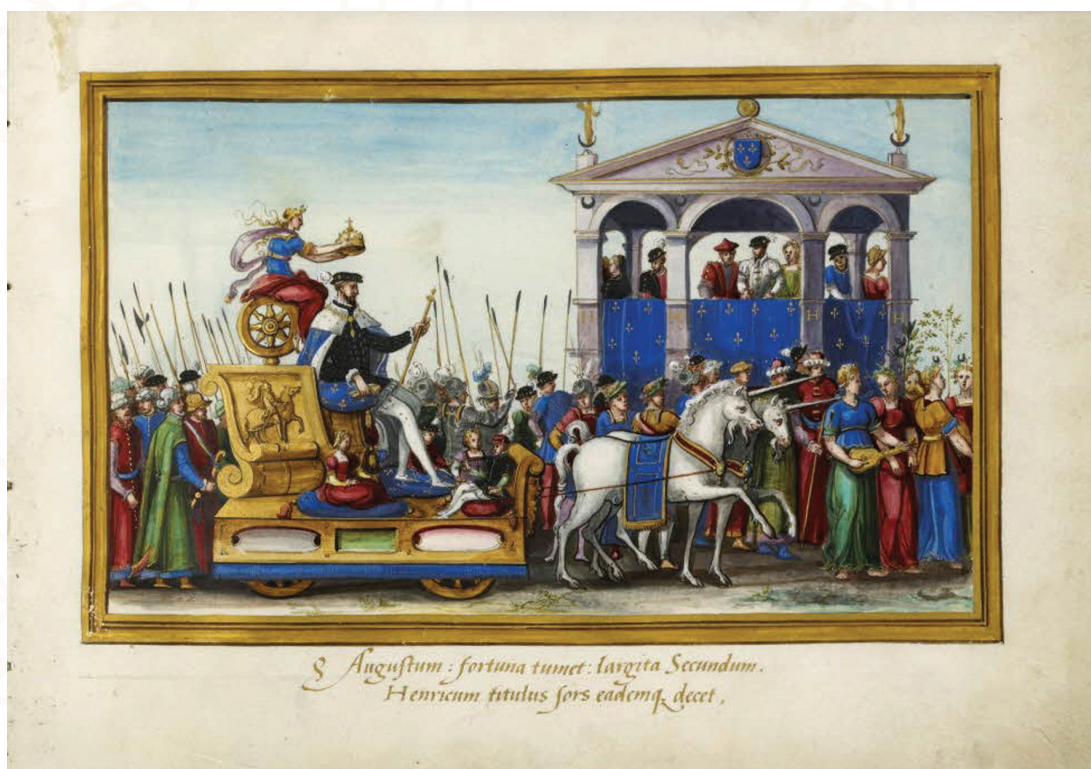 § Augustum: fortuna tumet: largita Secundum.
Henricum titulus sors eademq; decet.
H H